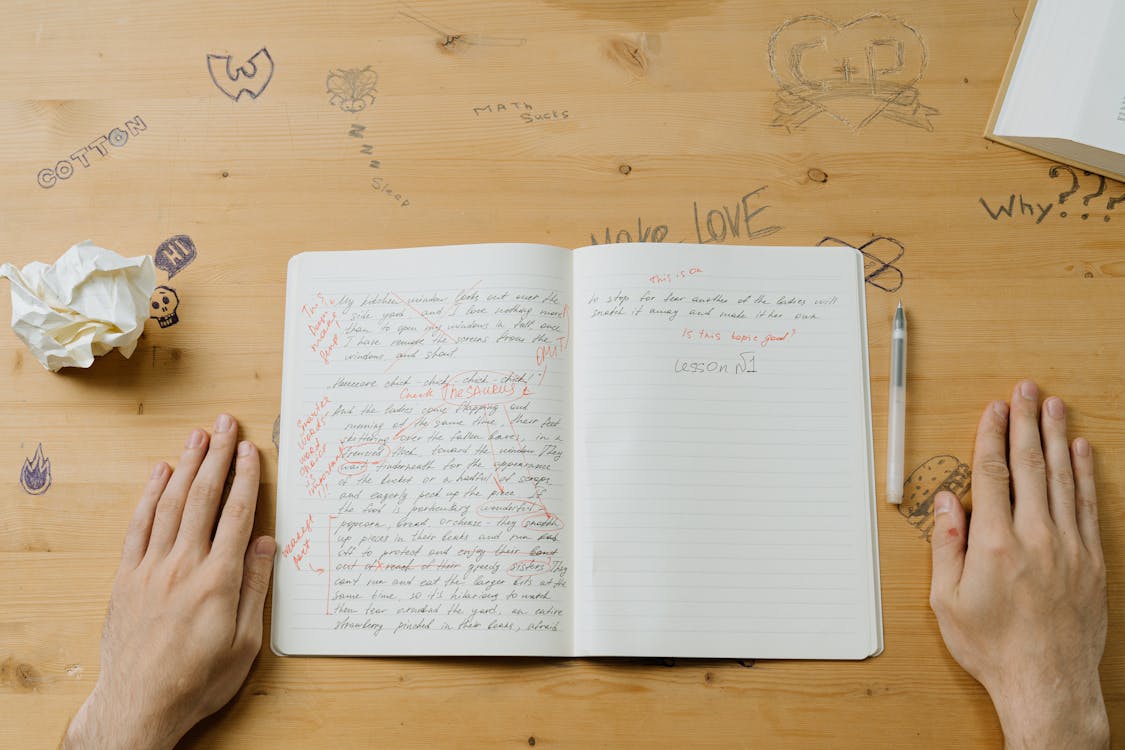 COTTON
W
zzzz
Sleep
MATH
Sucks
C+P
HI
Make LOVE
Why???
This
My kitchen window looks out over the
side yard and I love nothing more
than to open my windows in fall once
I have remove the screens from the
windows, and shout.
OMIT!
Hereeeere chick-chick, chick-chick!"
Check THESAURUS
And the ladies come flapping and
running at the same time, their feet
skittering over the fallen leaves, in a
frenzied flock, toward the window. They
wait underneath for the appearance
of the bucket or a handful of scraps
and eagerly peck up the piece. If
the food is particulary wonderful
popcorn, bread, or cheese - they snatch
up pieces in their beaks and run
off to protect and enjoy their bout
out of reach of their greedy sisters. They
can't run and eat the larger bits at the
same time, so it's hilarious to watch
them tear around the yard, an entire
strawberry pinched in their beaks, afraid
Smarter
words-
word
choice
important
!!!
weakest
part
This is on
to stop for fear another of the ladies will
snatch it away and make it her own.
Is this topic good?
Lesson №1